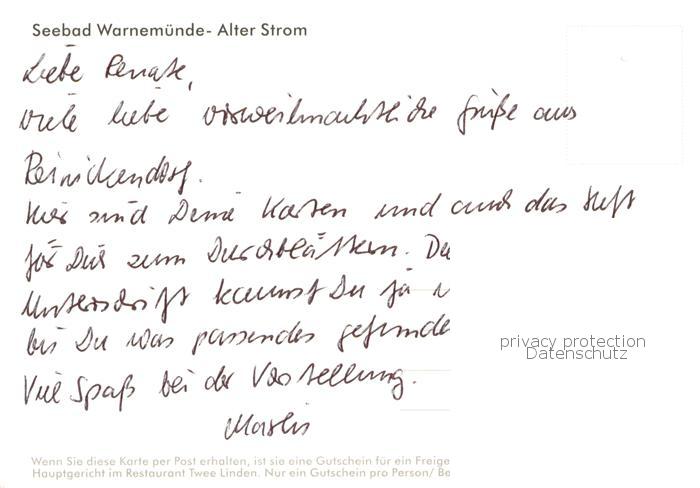 Seebad Warnemünde- Alter Strom
Liebe Renate,
viele liebe vorweihnachtliche Grüße aus
Reinickendorf.
Hier sind Deine Karten und auch das Heft
für Dich zum Durchblättern. Du
Unterschrift kannst Du ja
bis Du was passendes gefunde
Viel Spaß bei der Vorstellung.
privacy protection
Datenschutz
Wenn Sie diese Karte per Post erhalten, ist sie eine Gutschein für ein Freige
Hauptgericht im Restaurant Twee Linden. Nur ein Gutschein pro Person/ Be